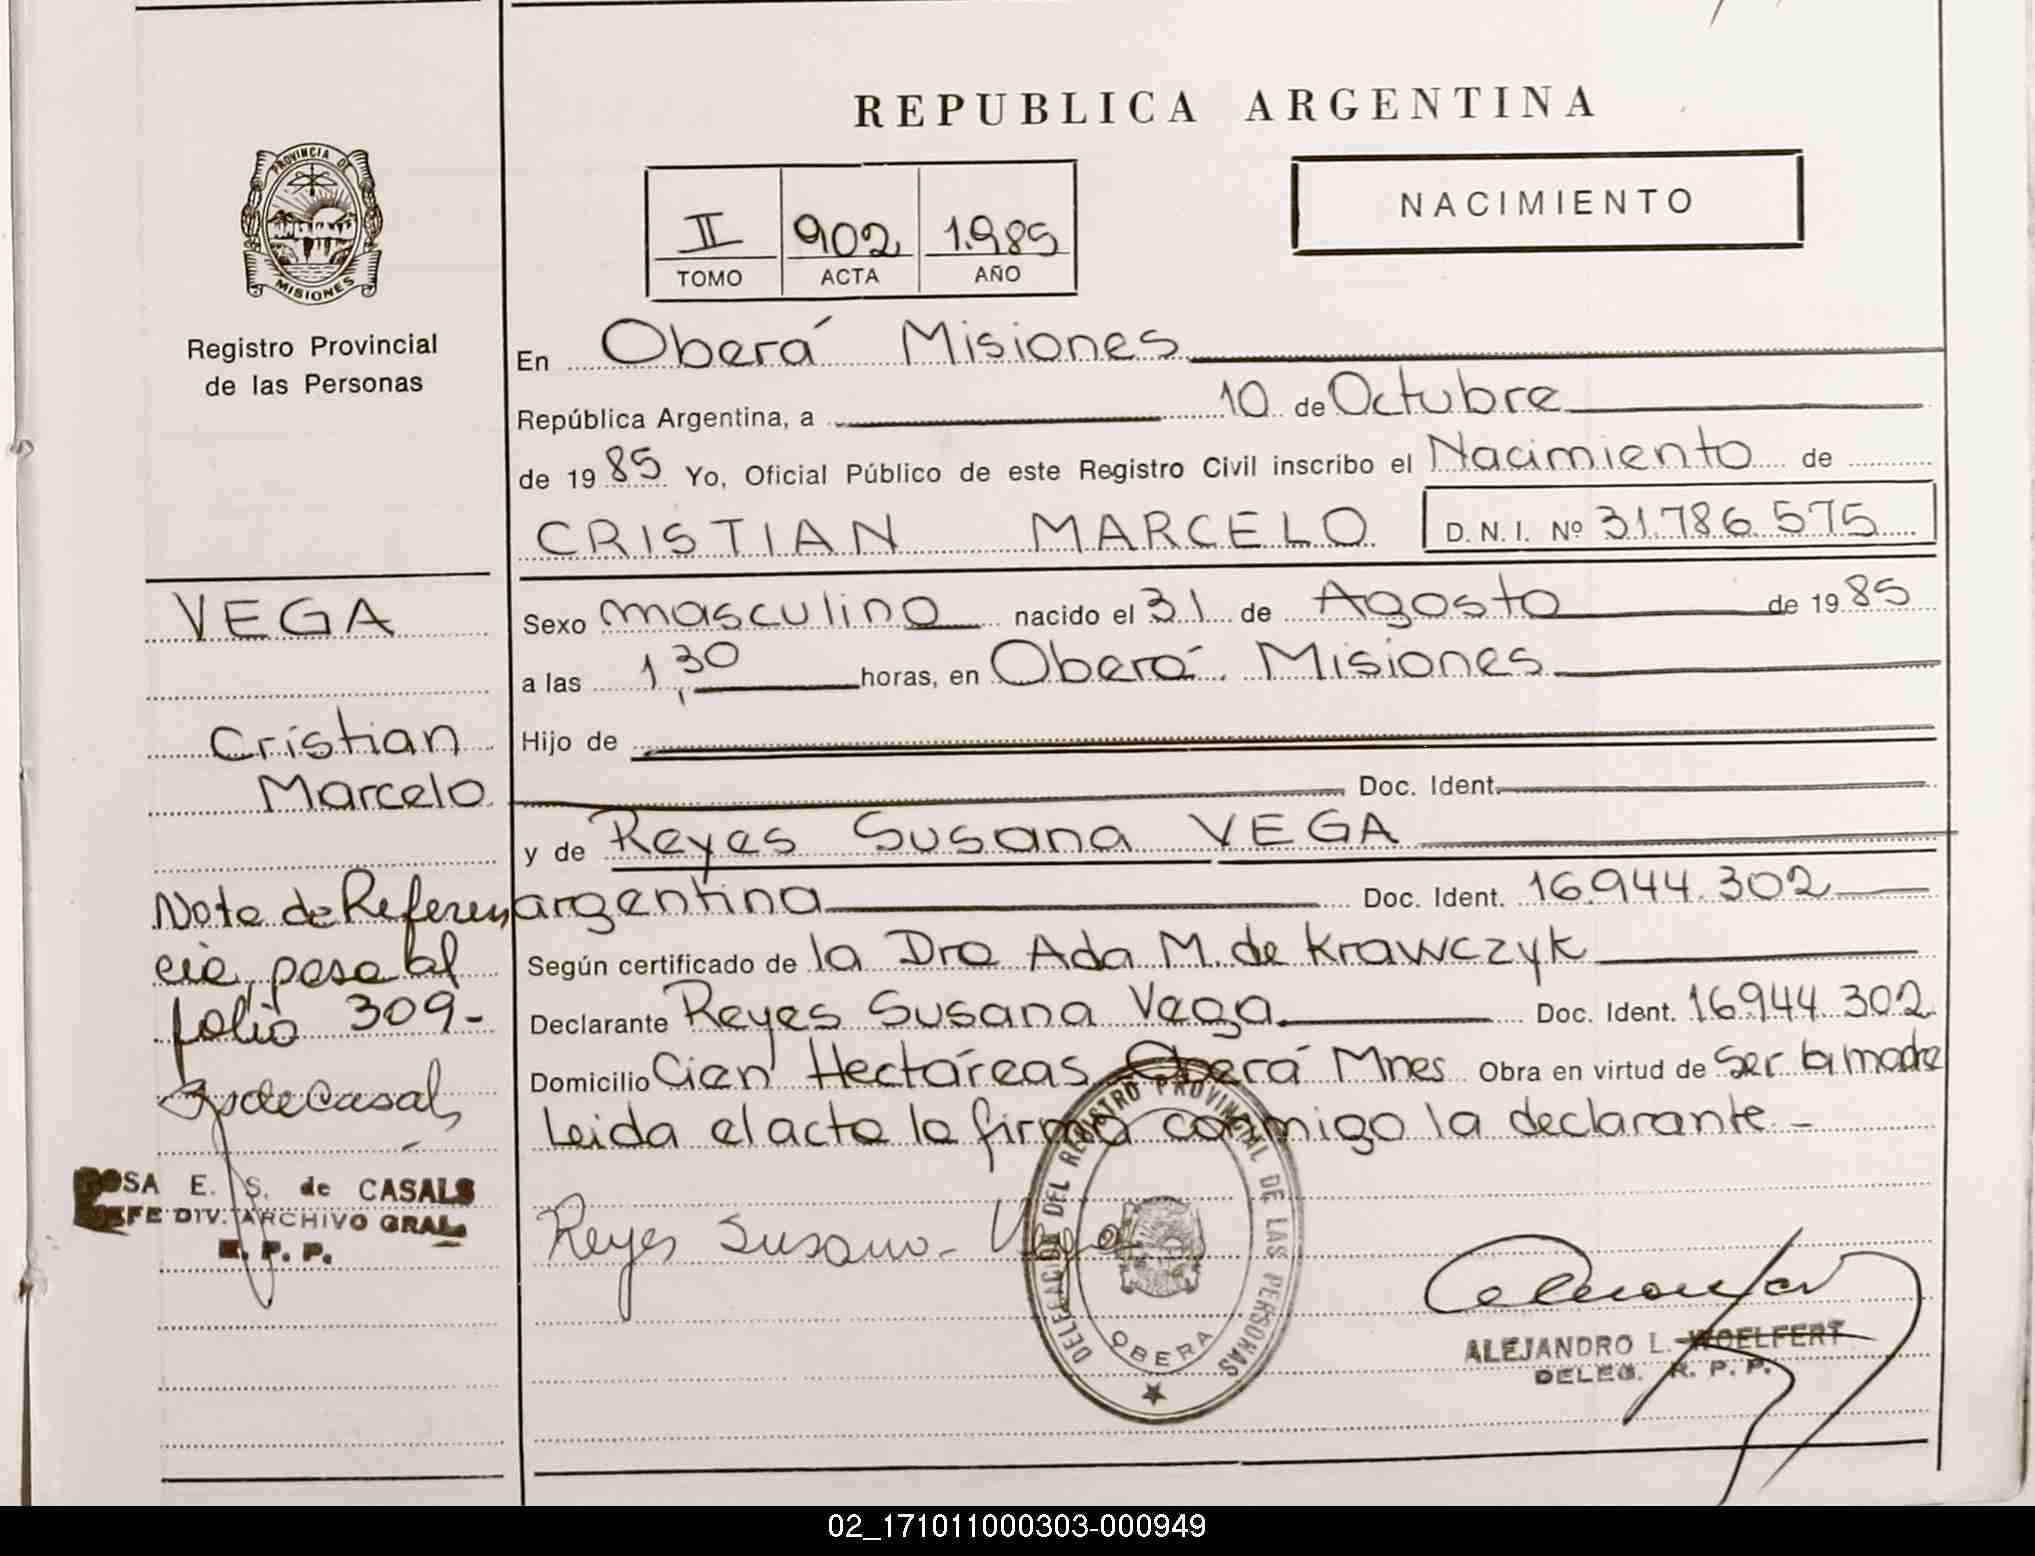 REPUBLICA ARGENTINA
PROVINCIA DE
MISIONES
Registro Provincial
de las Personas
II 902 1.985
TOMO ACTA AÑO
NACIMIENTO
En Oberá Misiones
República Argentina, a 10 de Octubre
de 19 85 Yo, Oficial Público de este Registro Civil inscribo el Nacimiento de
CRISTIAN MARCELO D. N. I. Nº 31.786.575
VEGA
Cristian
Marcelo
Nota de Referen
cia, pasa al
folio 309-
ROSA E. S. de CASALS
JEFE DIV. ARCHIVO GRAL.
R. P. P.
Sexo masculino nacido el 31 de Agosto de 19 85
a las 1,30 horas, en Oberá. Misiones
Hijo de
Doc. Ident.
y de Reyes Susana VEGA
argentina Doc. Ident. 16.944.302
Según certificado de la Dra Ada M. de Krawczyk
Declarante Reyes Susana Vega Doc. Ident. 16.944.302
Domicilio Cien Hectáreas Oberá Mnes Obra en virtud de Ser la madre
Leida el acta la firma conmigo la declarante.-
Reyes Susana Vega
DELEGACION DEL REGISTRO PROVINCIAL DE LAS PERSONAS
OBERA
ALEJANDRO L. WOELFERT
DELEG. R. P. P.
02_171011000303-000949